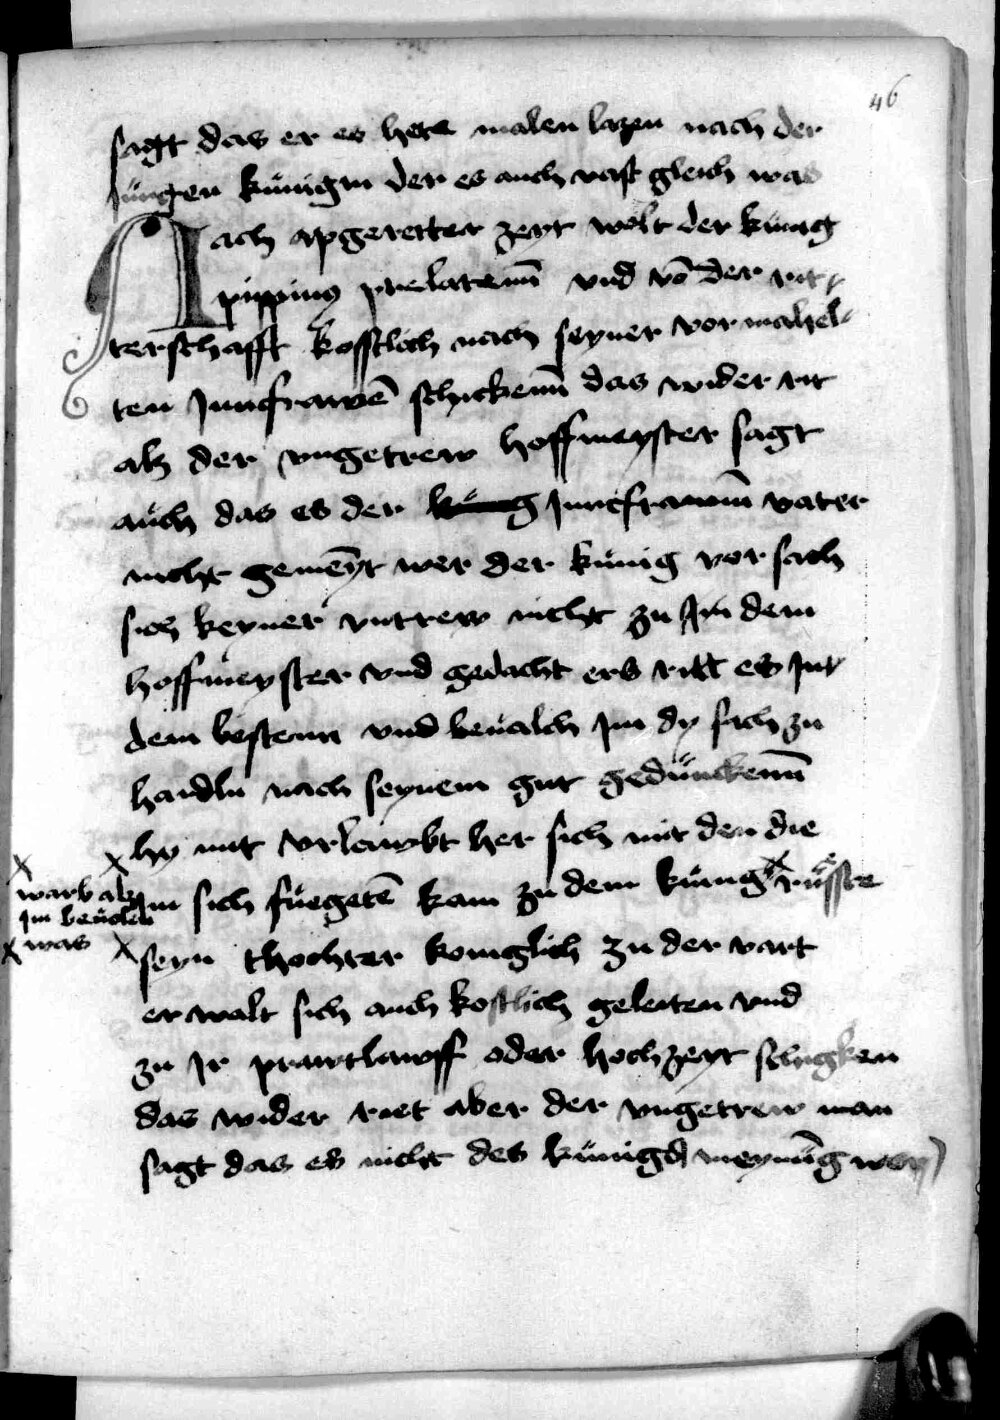 46
sagtt das er es hete malen lazen nach der
Jungen künigin der es auch vast gleich was
Nach apgeretter zeyt wolt der künig
pippinus prelatenn̄ vnd vō der rit
terschafft kosstlich nach seyner vor mahel
ten Junckfrawē schickenn̄ das wider rit
alz der vngetrew hoffmeyster sagt
aüch das es der Juncfrawn̄ vater
nicht gemēyt wer der künig vor sach
sich keyner vntrew nicht zu Im dem
hoffmeyster vnd gedacht ers ritt es Im
dem bestenn vnd beualch Im dy sach zu
handln nach seynem gut gedünckenn̄
hy mit vrlewbt her sich mit den die
warb alz
Im beuolen
was
Im sich füegetē kam zu dem künig rüsste
seyn thochter koniglich zu der vart
er walt sich auch kostlich geleiten vnd
zu Ir prawtlawff oder hochzeyt schigken
das wider riet aber der vngetrew man
sagt das es nicht des künigs meynūg wer